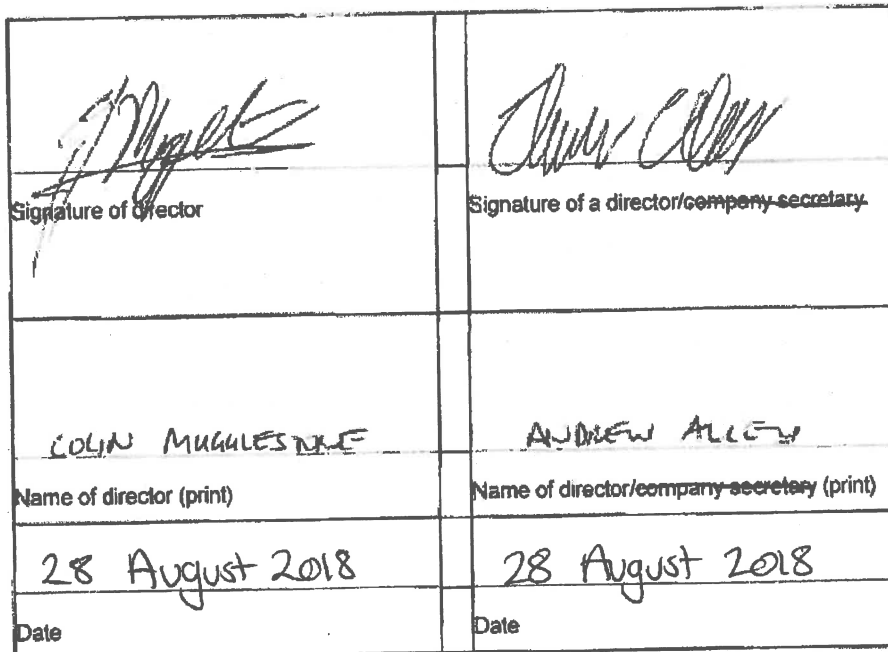 Signature of director
Signature of a director/company secretary
COLIN MUGGLESTONE
ANDREW ALLEN
Name of director (print)
Name of director/company secretary (print)
28 August 2018
28 August 2018
Date
Date